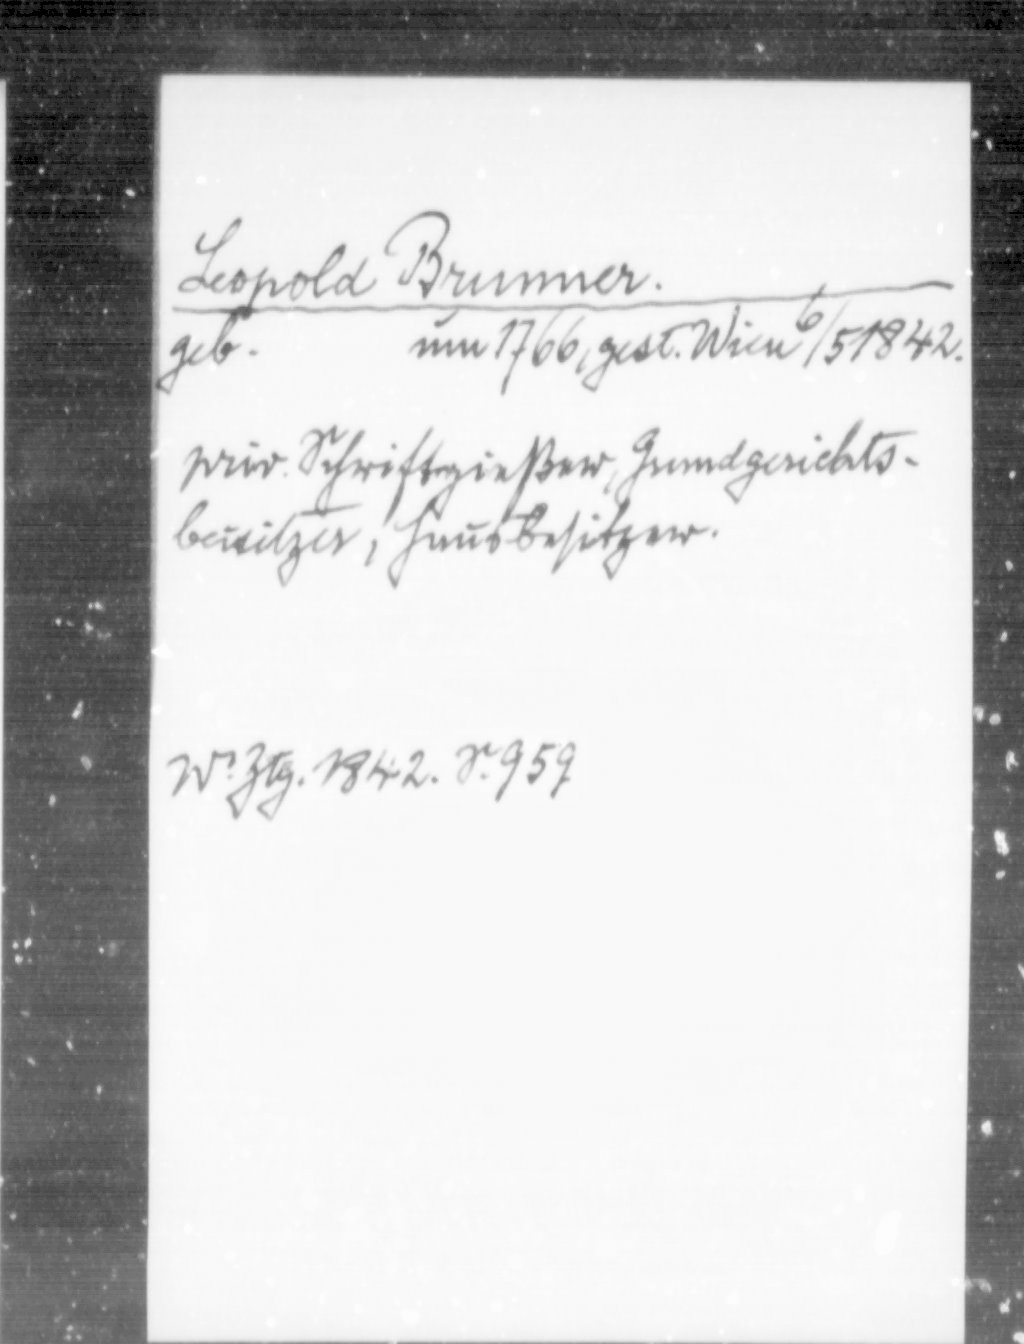 Leopold Brunner.
geb. um 1766, gest. Wien 6/5 1842.
priv. Schriftgießer, Grundgerichts-
beisitzer, Hausbesitzer.
Wr. Ztg. 1842. S. 959